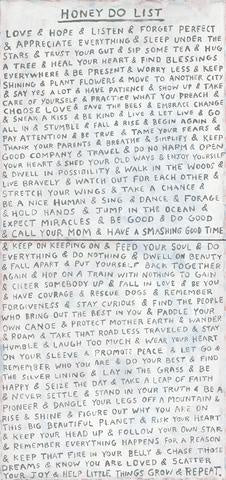 HONEY DO LIST
LOVE & HOPE & LISTEN & FORGET PERFECT
& APPRECIATE EVERYTHING & SLEEP UNDER THE
STARS & TRUST YOUR GUT & SIP SOME TEA & HUG
A TREE & HEAL YOUR HEART & FIND BLESSINGS
EVERYWHERE & BE PRESENT & WORRY LESS & KEEP
SHINING & PLANT FLOWERS & MOVE TO ANOTHER CITY
& SAY YES A LOT & HAVE PATIENCE & SHOW UP & TAKE
CARE OF YOURSELF & PRACTICE WHAT YOU PREACH &
CHOOSE LOVE & SAVE THE BEES & EMBRACE CHANGE
& SNEAK A KISS & BE KIND & LIVE & LET LIVE & GO
ALL IN & STUMBLE & FALL & RISE & BEGIN AGAIN &
PAY ATTENTION & BE TRUE & TAME YOUR FEARS &
THANK YOUR PARENTS & BREATHE & SIMPLIFY & KEEP
GOOD COMPANY & TRAVEL & DO NO HARM & OPEN
YOUR HEART & SHED YOUR OLD WAYS & ENJOY YOURSELF
& DWELL IN POSSIBILITY & WALK IN THE WOODS &
LIVE BRAVELY & WATCH OUT FOR EACH OTHER &
STRETCH YOUR WINGS & TAKE A CHANCE &
BE A NICE HUMAN & SING & DANCE & FORAGE
& HOLD HANDS & JUMP IN THE OCEAN &
EXPECT MIRACLES & BE GOOD & DO GOOD
& CALL YOUR MOM & HAVE A SMASHING GOOD TIME
& KEEP ON KEEPING ON & FEED YOUR SOUL & DO
EVERYTHING & DO NOTHING & DWELL ON BEAUTY
& FALL APART & PUT YOURSELF BACK TOGETHER
AGAIN & HOP ON A TRAIN WITH NOTHING TO GAIN
& CHEER SOMEBODY UP & FALL IN LOVE & BE YOU
& HAVE COURAGE & RESCUE DOGS & REMEMBER
FORGIVENESS & STAY CURIOUS & FIND THE PEOPLE
WHO BRING OUT THE BEST IN YOU & PADDLE YOUR
OWN CANOE & PROTECT MOTHER EARTH & WANDER
& ROAM & TAKE THAT ROAD LESS TRAVELED & STAY
HUMBLE & LAUGH TOO MUCH & WEAR YOUR HEART
ON YOUR SLEEVE & PROMOTE PEACE & LET GO &
REMEMBER WHO YOU ARE & DO YOUR BEST & FIND
THE SILVER LINING & LAY IN THE GRASS & BE
HAPPY & SEIZE THE DAY & TAKE A LEAP OF FAITH
& NEVER SETTLE & STAND IN YOUR TRUTH & BE A
PIONEER & DANGLE YOUR LEGS OFF A MOUNTAIN &
RISE & SHINE & FIGURE OUT WHY YOU ARE ON
THIS BIG BEAUTIFUL PLANET & RISK YOUR HEART
& KEEP YOUR HEAD UP & FOLLOW YOUR OWN STAR
& REMEMBER EVERYTHING HAPPENS FOR A REASON
& KEEP THAT FIRE IN YOUR BELLY & CHASE THOSE
DREAMS & KNOW YOU ARE LOVED & SCATTER
YOUR JOY & HELP LITTLE THINGS GROW & REPEAT.